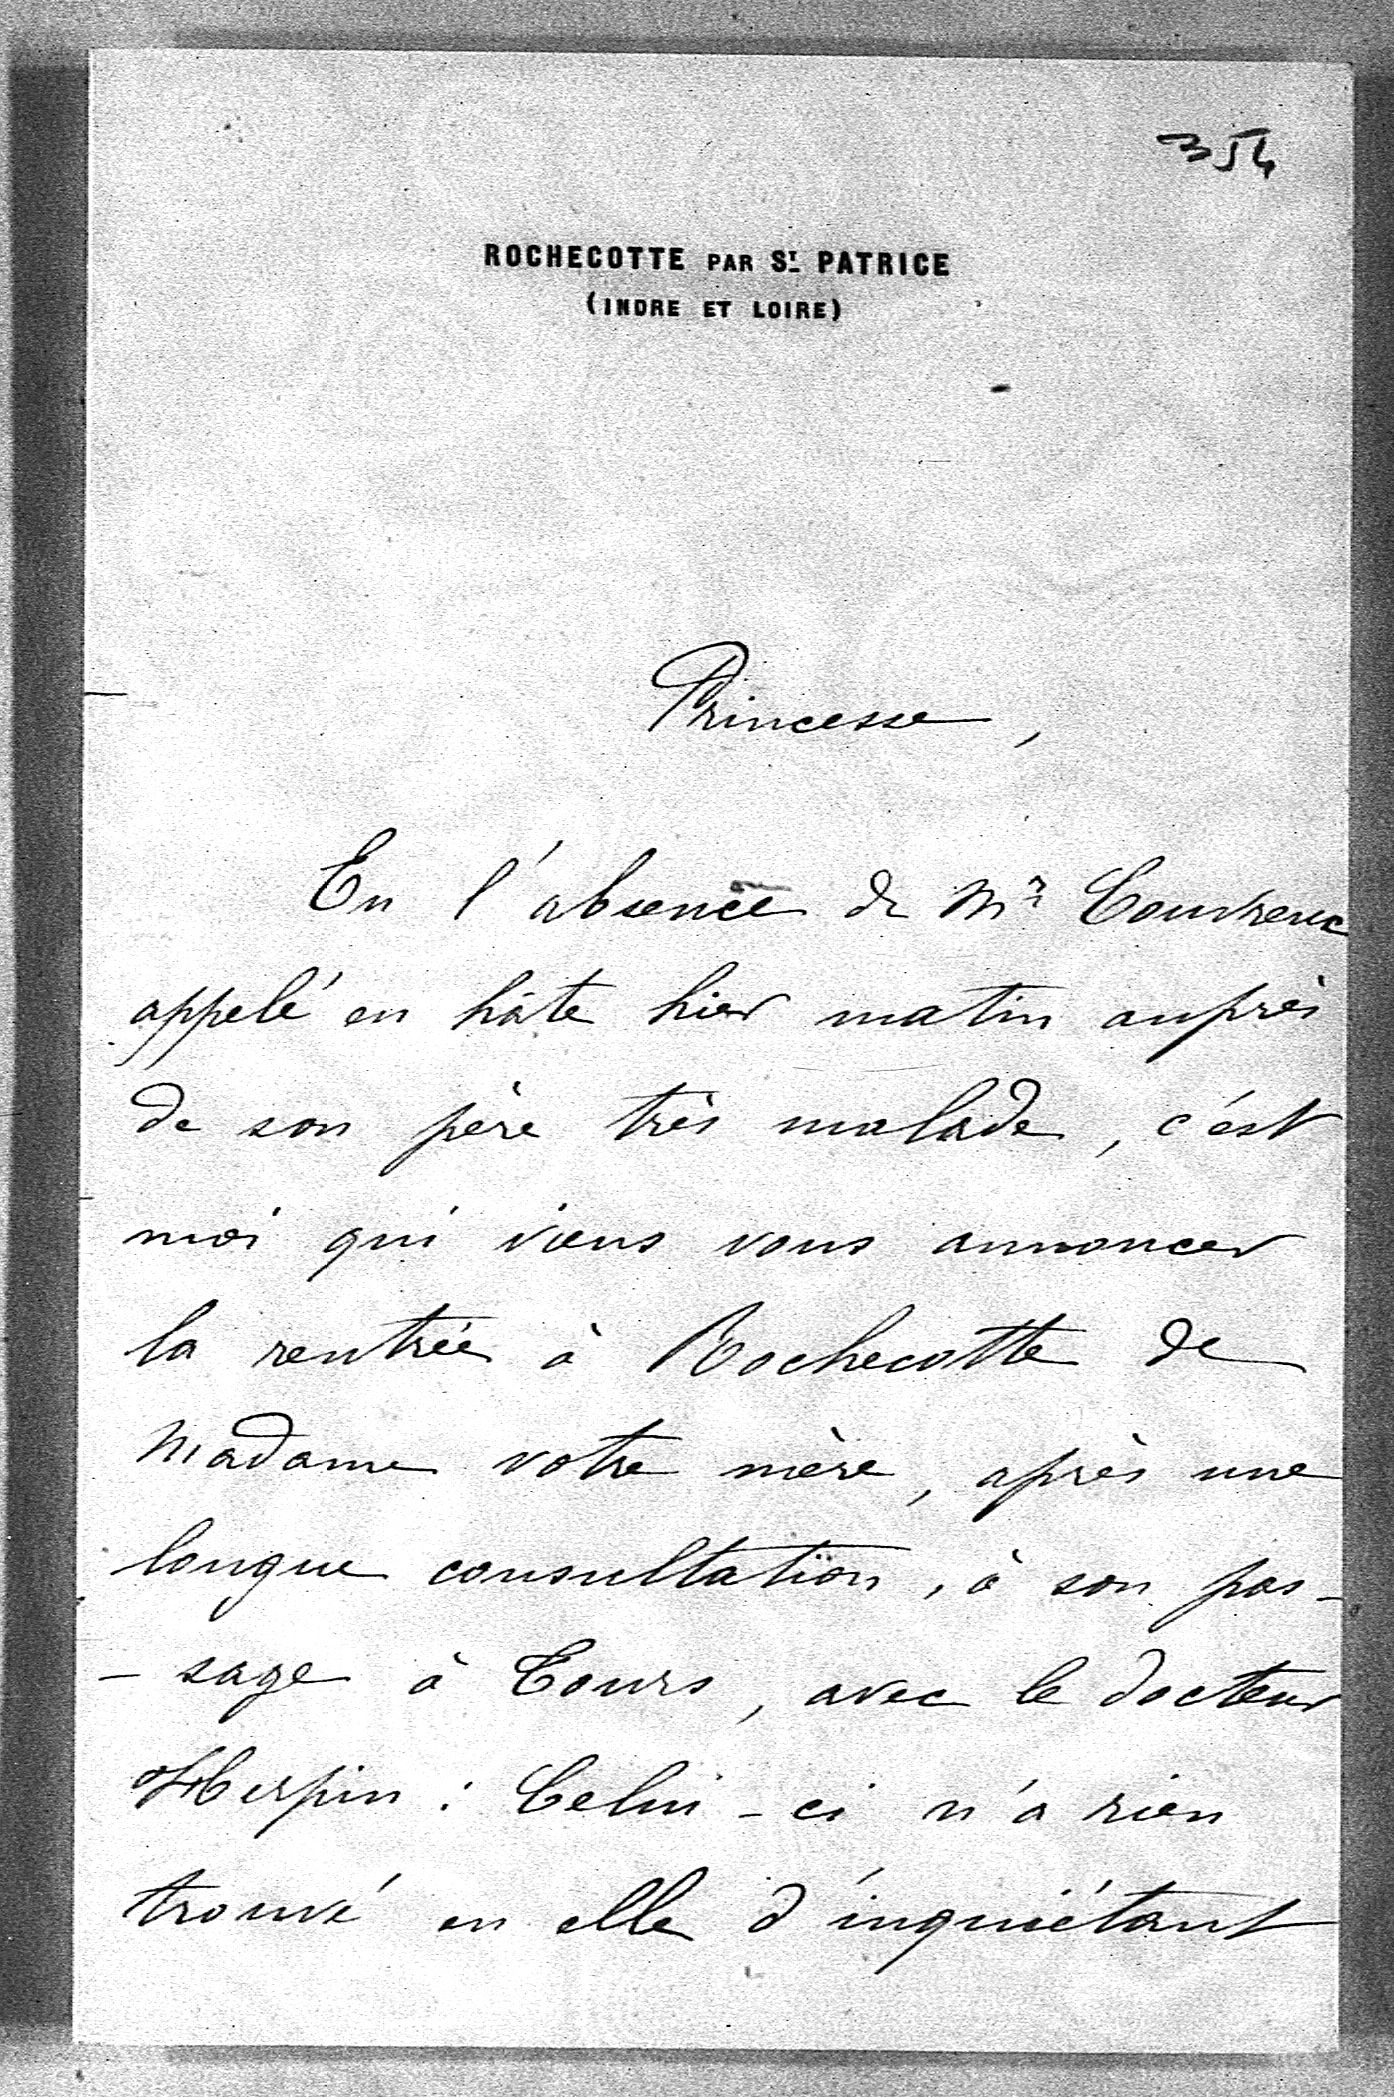 354
ROCHECOTTE PAR ST. PATRICE
(INDRE ET LOIRE)
Princesse,
En l'absence de Mr
appelé en hâte hier matin auprès
de son père très malade, c'est
moi qui viens vous annoncer
la rentrée à Rochecotte de
Madame votre mère, après une
longue consultation, à son pas-
- sage à Tours, avec le docteur
Herpin : Celui-ci n'a rien
trouvé en elle d'inquiétant